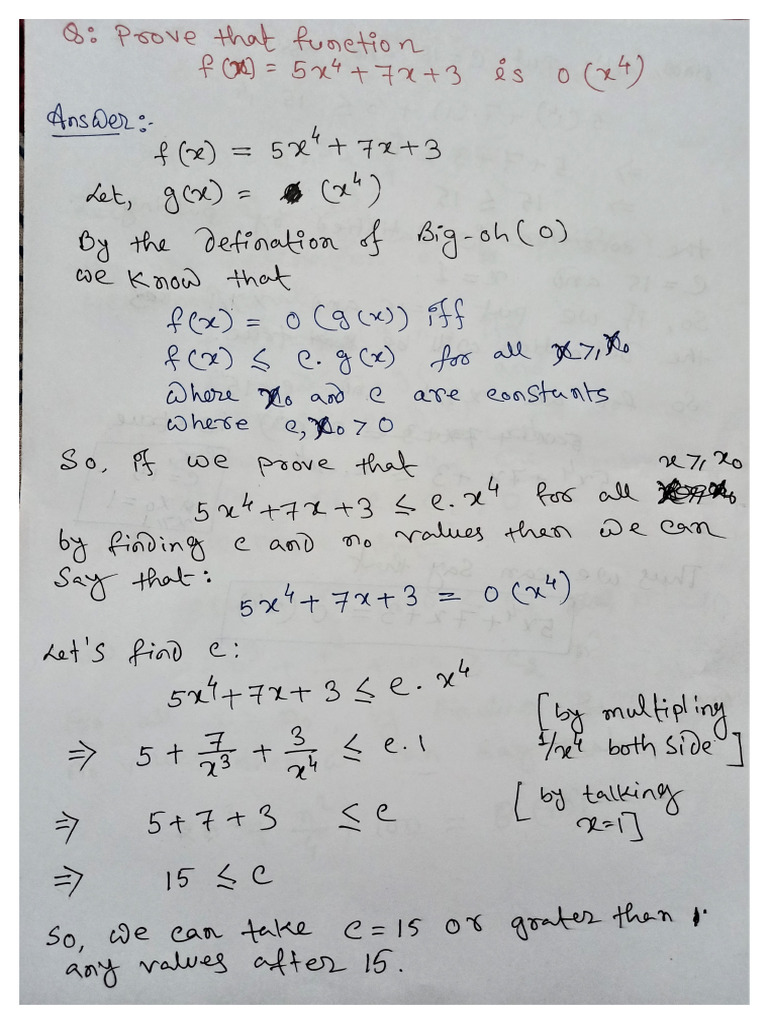 Q: Prove that function
f(x) = 5x⁴ + 7x + 3 is O(x⁴)
Answer:-
f(x) = 5x⁴ + 7x + 3
Let, g(x) = (x⁴)
By the defination of Big-oh(O)
we know that
f(x) = O(g(x)) iff
f(x) ≤ c. g(x) for all x ≥ x₀
where x₀ and c are constants
where c, x₀ > 0
So, if we prove that
5x⁴ + 7x + 3 ≤ c. x⁴ for all x ≥ x₀
by finding c and n₀ values then we can
Say that:
5x⁴ + 7x + 3 = O(x⁴)
Let's find c:
5x⁴ + 7x + 3 ≤ c. x⁴
⇒ 5 + 7/x³ + 3/x⁴ ≤ c.1 [by multipling 1/x⁴ both side]
⇒ 5 + 7 + 3 ≤ c [by talking x=1]
⇒ 15 ≤ c
So, we can take c = 15 or grater then
any values after 15.